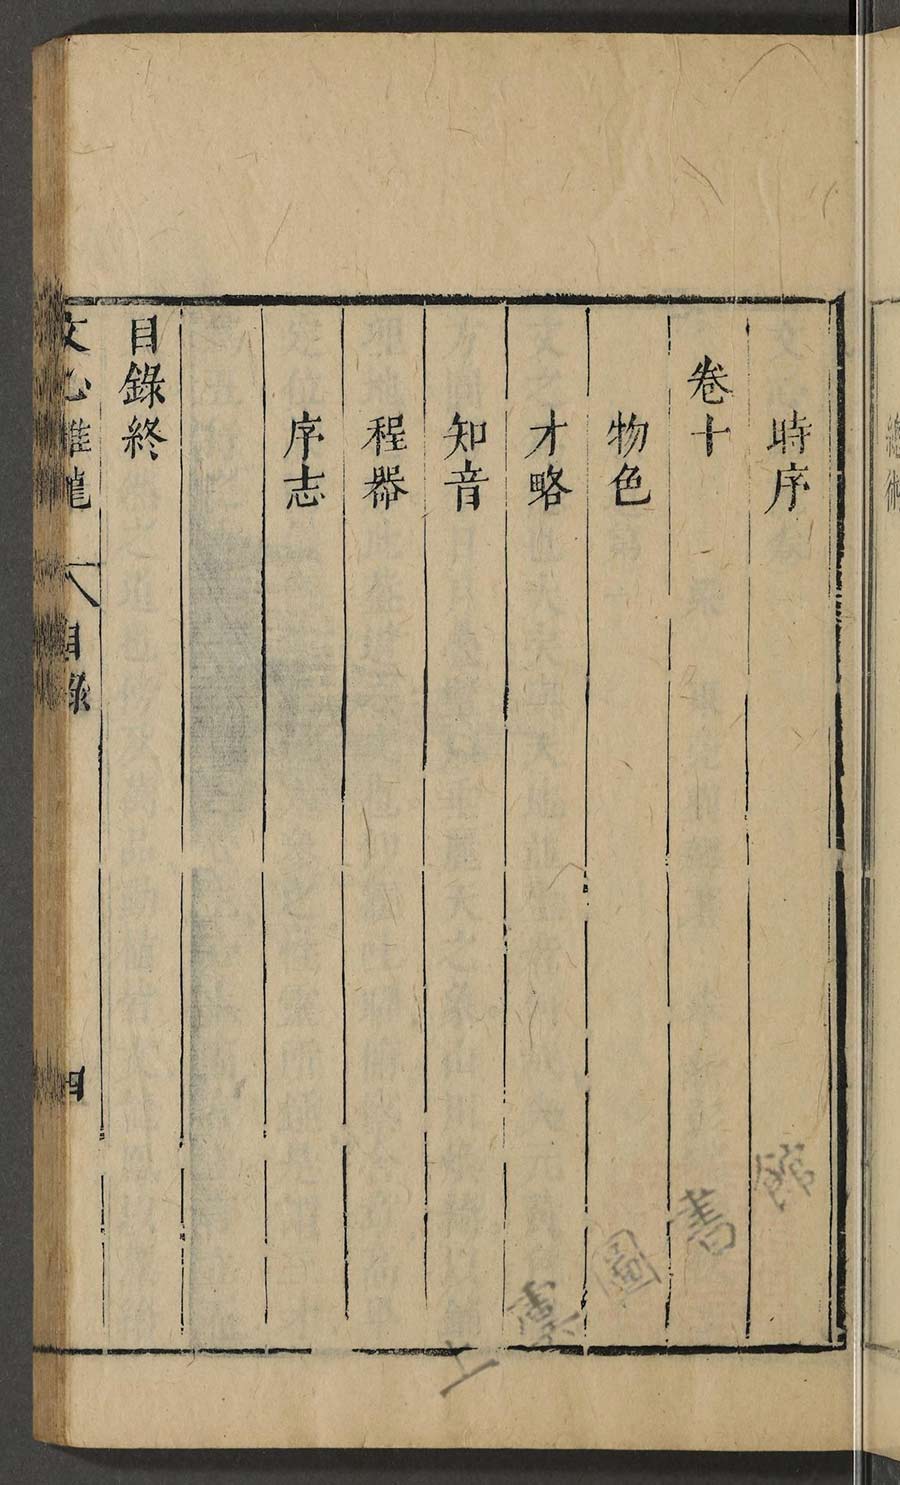 時序
卷十
物色
才略
知音
程器
序志
目錄終
文心雕龍 目錄 四
總術
上虞圖書館